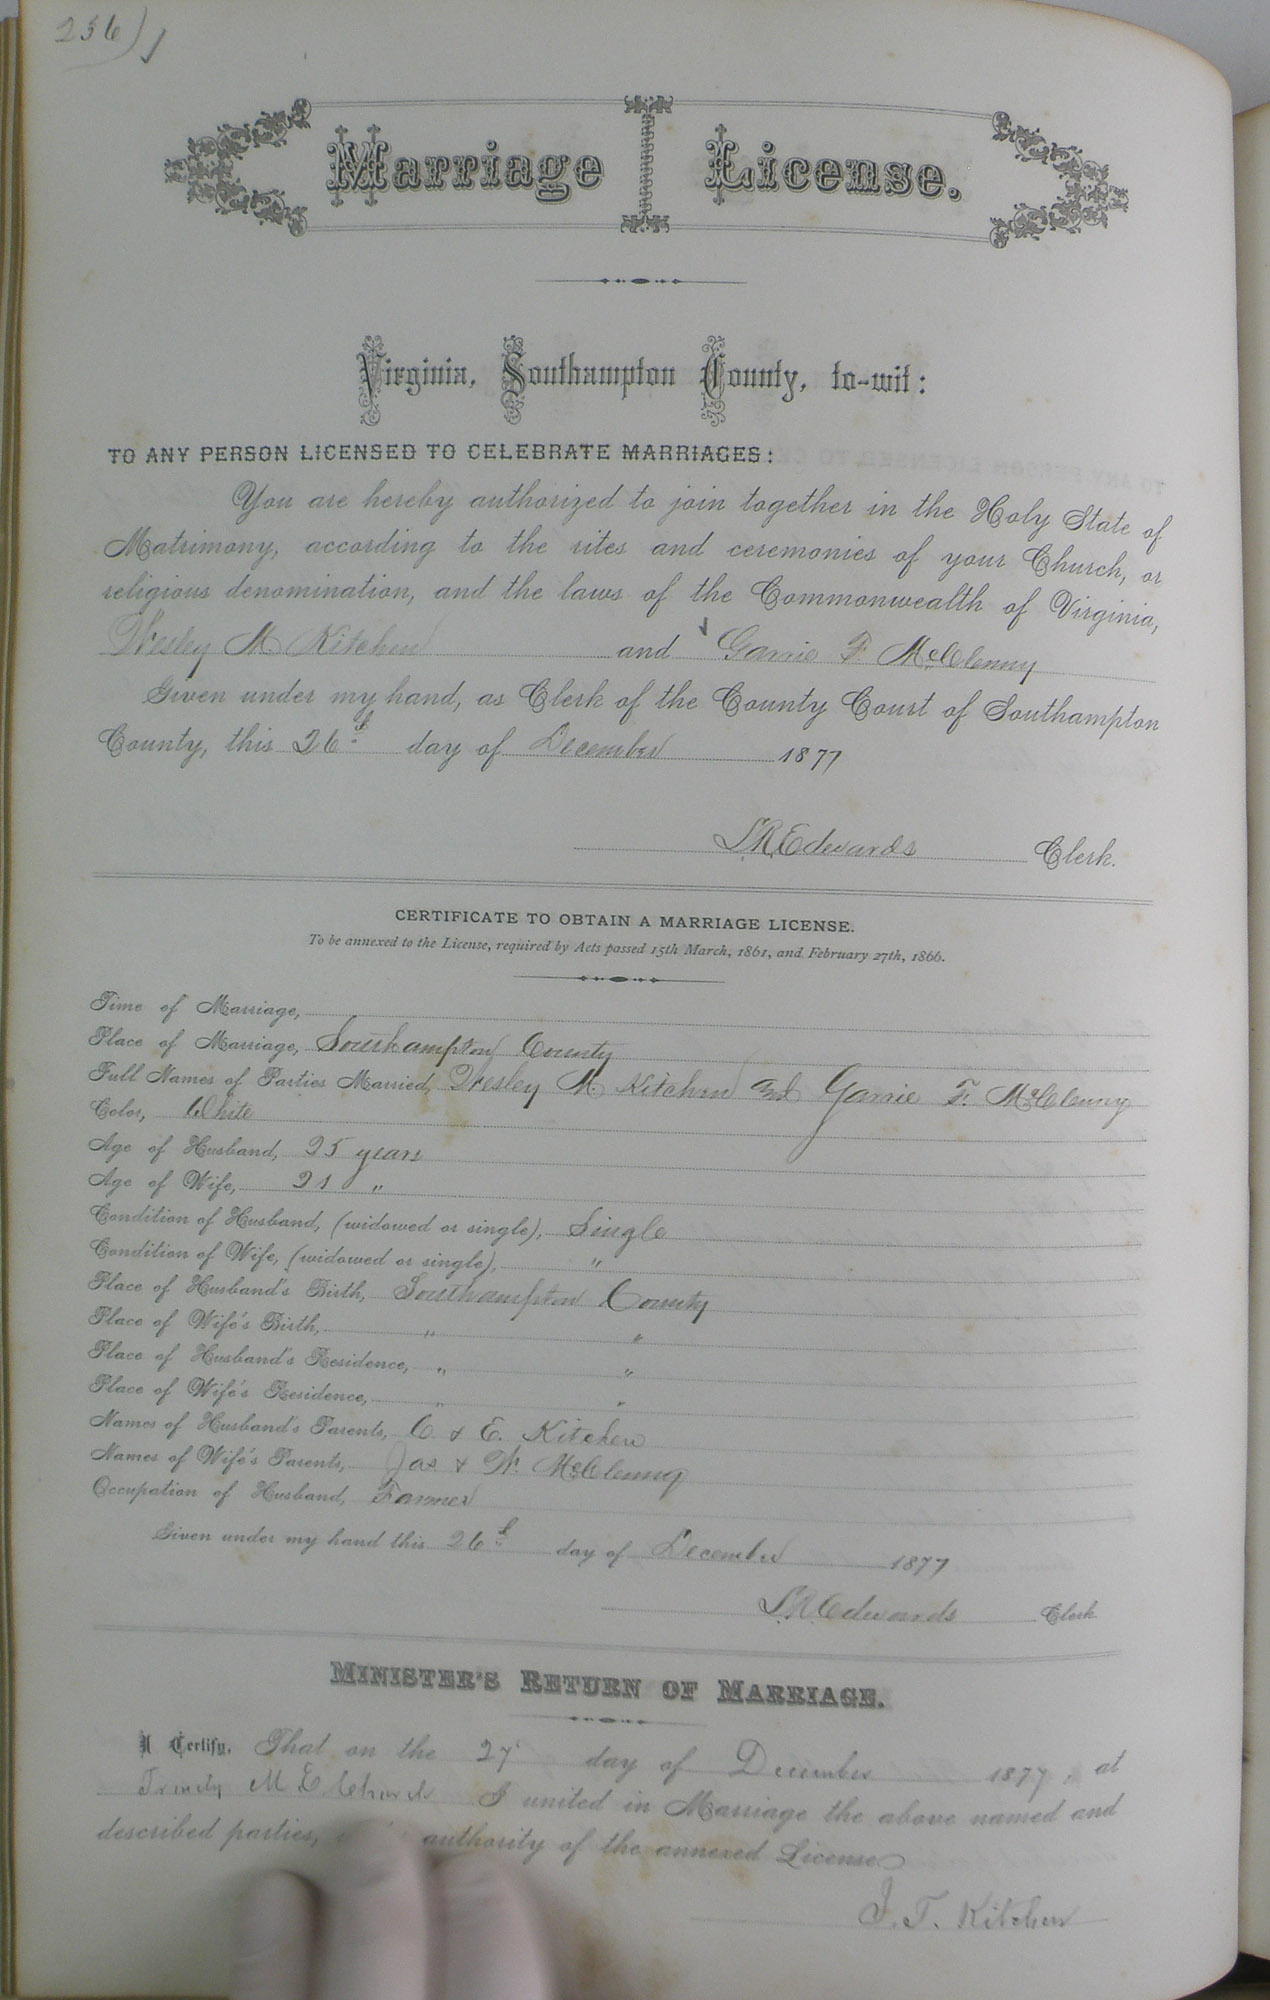 256)
Marriage License.
Virginia, Southampton County, to-wit:
TO ANY PERSON LICENSED TO CELEBRATE MARRIAGES:
You are hereby authorized to join together in the Holy State of
Matrimony, according to the rites and ceremonies of your Church, or
religious denomination, and the laws of the Commonwealth of Virginia,
Wesley M Kitchen and Garrie F. McClenny
Given under my hand, as Clerk of the County Court of Southampton
County, this 26th day of December 1877
L.R. Edwards Clerk.
CERTIFICATE TO OBTAIN A MARRIAGE LICENSE.
To be annexed to the License, required by Acts passed 15th March, 1861, and February 27th, 1866.
Time of Marriage,
Place of Marriage, Southampton County
Full Names of Parties Married, Wesley M Kitchen and Garrie F. McClenny
Color, White
Age of Husband, 25 years
Age of Wife, 21 "
Condition of Husband, (widowed or single), Single
Condition of Wife, (widowed or single), "
Place of Husband's Birth, Southampton County
Place of Wife's Birth, " "
Place of Husband's Residence, " "
Place of Wife's Residence, " "
Names of Husband's Parents, C. & E. Kitchen
Names of Wife's Parents, Jas & W. McClenny
Occupation of Husband, Farmer
Given under my hand this 26th day of December 1877
L.R. Edwards Clerk
MINISTER'S RETURN OF MARRIAGE.
I Certify, That on the 27 day of December 1877, at
Trinity M E Church I united in Marriage the above named and
described parties, authority of the annexed License
J. T. Kitchen